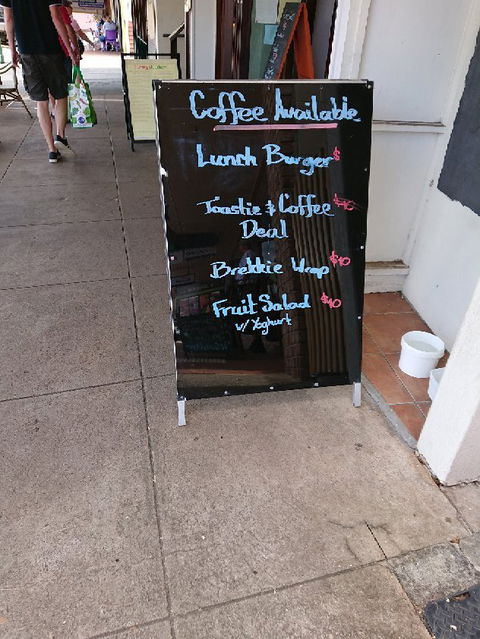 Coffee Available
Lunch Burger $
Toastie & Coffee $10
Deal
Brekkie Wrap $10
Fruit Salad $10
w/ Yoghurt